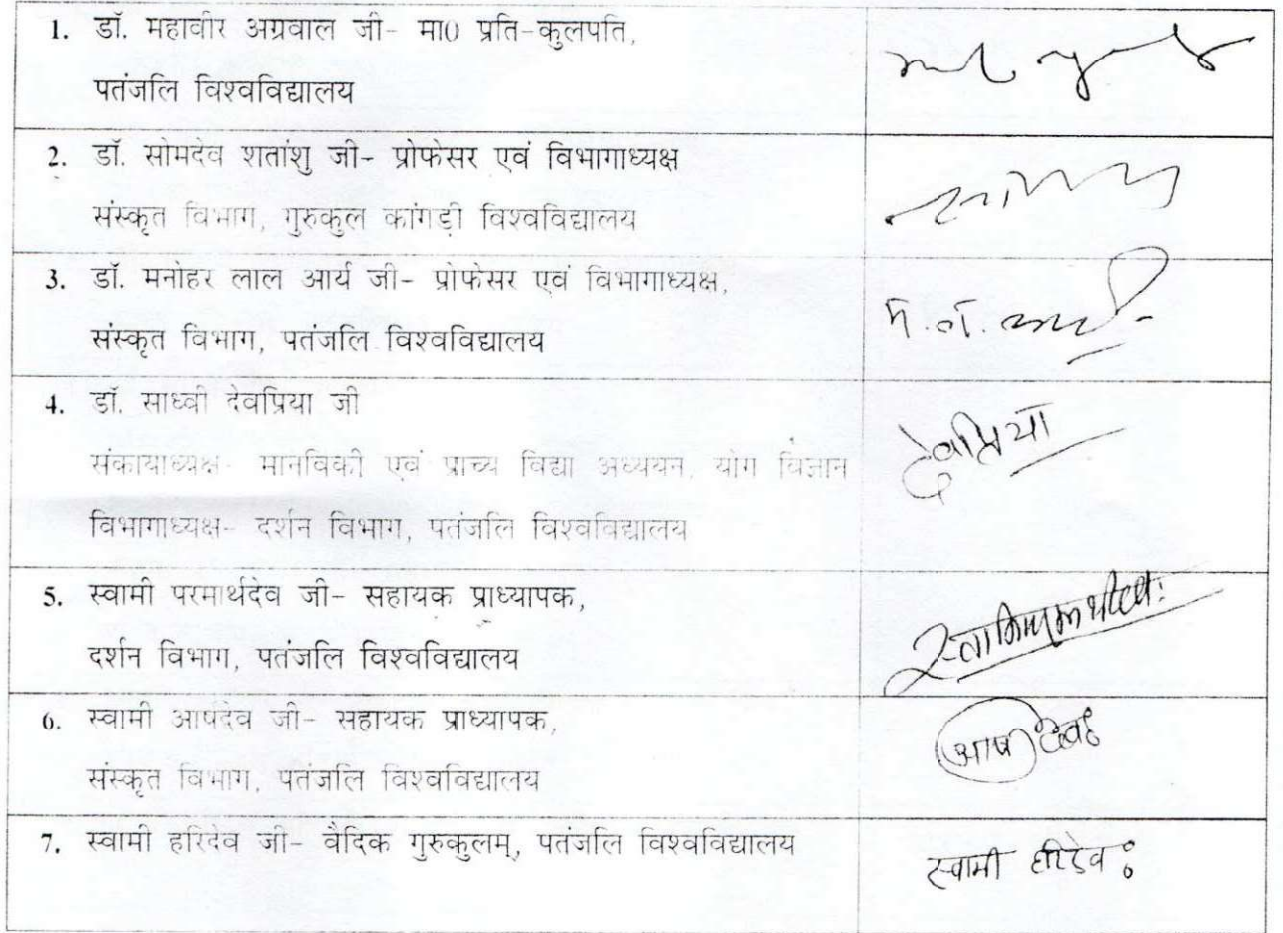 1. डॉ. महावीर अग्रवाल जी- मा0 प्रति-कुलपति,
पतंजलि विश्वविद्यालय
2. डॉ. सोमदेव शतांशु जी- प्रोफेसर एवं विभागाध्यक्ष
संस्कृत विभाग, गुरुकुल कांगड़ी विश्वविद्यालय
3. डॉ. मनोहर लाल आर्य जी- प्रोफेसर एवं विभागाध्यक्ष,
संस्कृत विभाग, पतंजलि विश्वविद्यालय
4. डॉ. साध्वी देवप्रिया जी
देवप्रिया
संकायाध्यक्ष- मानविकी एवं प्राच्य विद्या अध्ययन, योग विज्ञान
विभागाध्यक्ष- दर्शन विभाग, पतंजलि विश्वविद्यालय
5. स्वामी परमार्थदेव जी- सहायक प्राध्यापक,
दर्शन विभाग, पतंजलि विश्वविद्यालय
6. स्वामी आर्षदेव जी- सहायक प्राध्यापक,
आर्षदेवः
संस्कृत विभाग, पतंजलि विश्वविद्यालय
7. स्वामी हरिदेव जी- वैदिक गुरुकुलम्, पतंजलि विश्वविद्यालय
स्वामी हरिदेवः